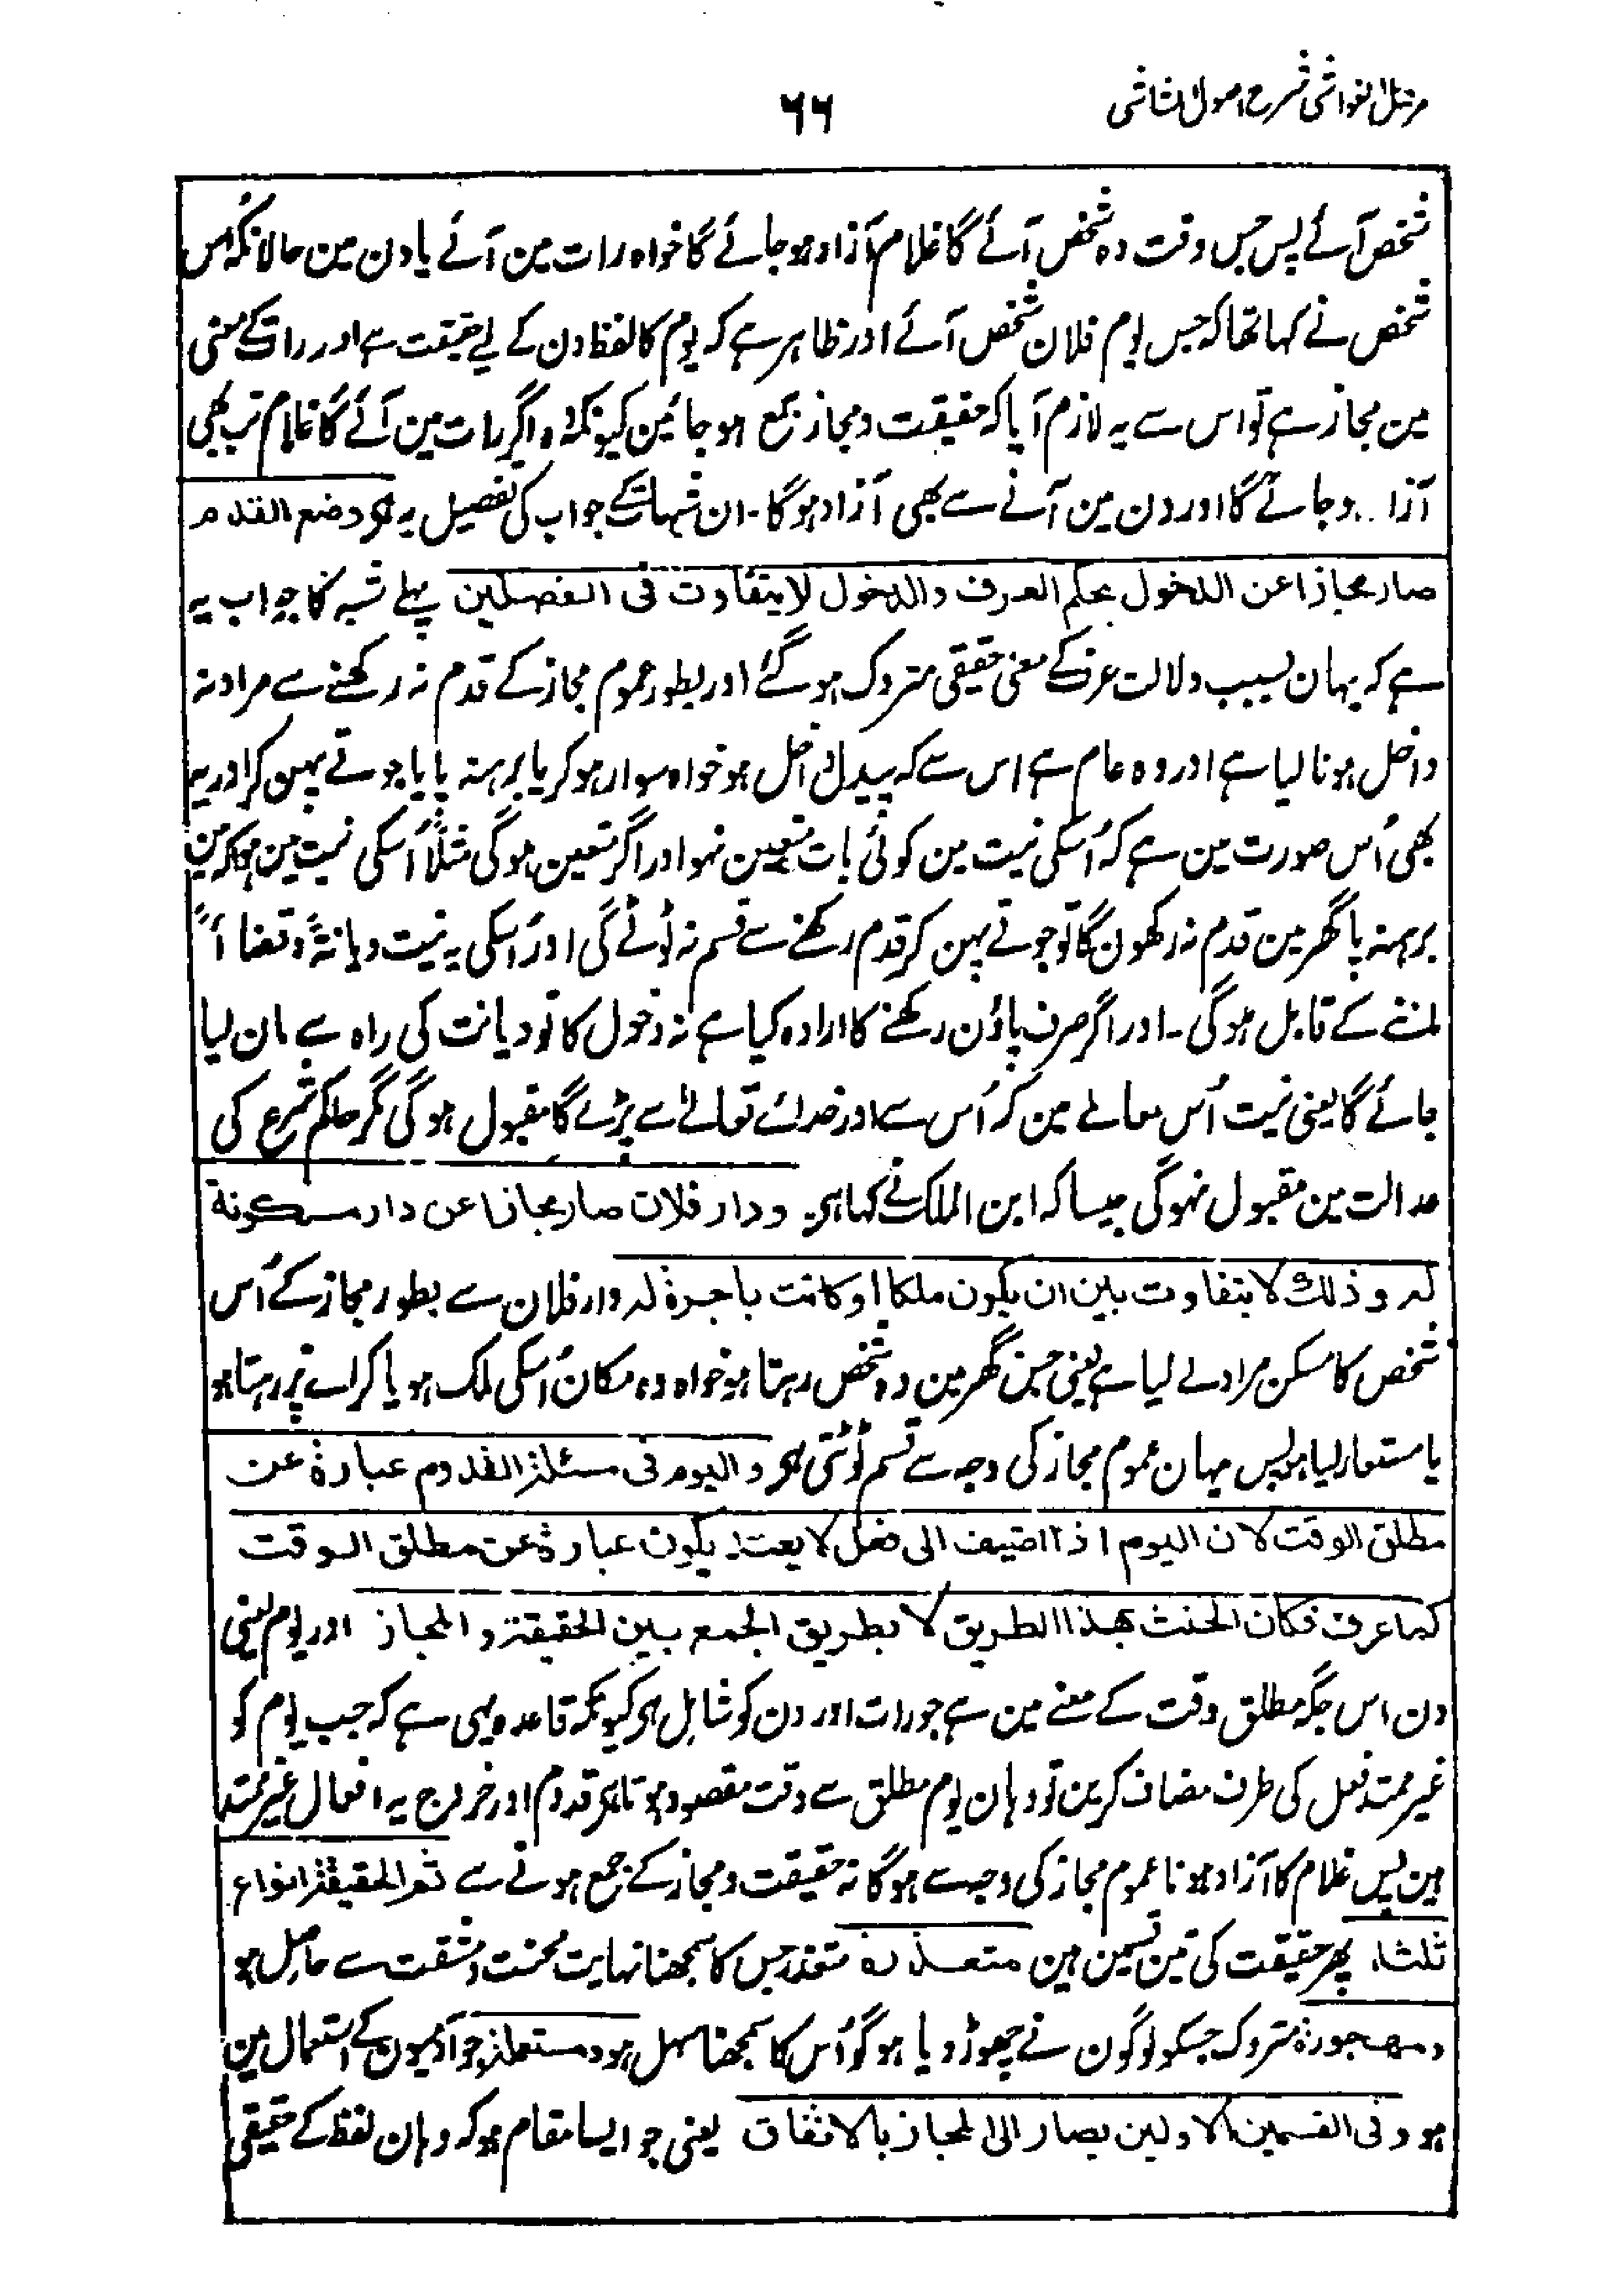 مزیل الغواشی شرح اصول الشاشی
٦٦
شخص آئے پس جس وقت وہ شخص آئے گا غلام آزاد ہو جائے گا خواہ رات مین آئے یا دن مین حالانکہ اُس
شخص نے کہا تھا کہ جس یوم فلان شخص آئے اور ظاہر ہے کہ یوم کا لفظ دن کے لیے حقیقت ہے اور رات کے معنی
مین مجاز ہے تو اس سے یہ لازم آیا کہ حقیقت و مجاز جمع ہو جائین کیونکہ وہ اگر رات مین آئے گا غلام تب بھی
آزاد ہو جائے گا اور دن مین آنے سے بھی آزاد ہوگا۔ ان شبہات کے جواب کی تفصیل یہ ہے وضع القدم
صار مجازا عن الدخول بحکم العرف والدخول لا یتفاوت فی الفصلین پہلے شبہ کا جواب یہ
ہے کہ یہان بسبب دلالت عرف کے معنی حقیقی متروک ہوگئے اور بطور عموم مجاز کے قدم نہ رکھنے سے مراد نہ
داخل ہونا لیا ہے اور وہ عام ہے اس سے کہ پیدل داخل ہو خواہ سوار ہو کر یا برہنہ پا یا جوتے پہن کر اور یہ
بھی اُس صورت مین ہے کہ اُسکی نیت مین کوئی بات متعین نہو اور اگر متعین ہوگی مثلاً اُسکی نیت مین ہو کہ مین
برہنہ پا گھر مین قدم نہ رکھون گا تو جوتے پہن کر قدم رکھنے سے قسم نہ ٹوٹے گی اور اُسکی یہ نیت دیانۃً و قضاءً
ماننے کے قابل ہوگی۔ اور اگر صرف پاؤن رکھنے کا ارادہ کیا ہے نہ دخول کا تو دیانت کی راہ سے مان لیا
جائے گا یعنی نیت اُس معاملے مین کہ اُس سے اور خدائے تعالےٰ سے پڑے گا مقبول ہوگی مگر حاکم شرع کی
عدالت مین مقبول نہوگی جیسا کہ ابن الملک نے کہا ہے۔ ودار فلان صار مجازا عن دار مسکونۃ
لہ وذلک لا یتفاوت بین ان یکون ملکا او کانت باجرۃ لہ دار فلان سے بطور مجاز کے اُس
شخص کا مسکن مراد لے لیا ہے یعنی جس گھر مین وہ شخص رہتا ہو خواہ وہ مکان اُسکی ملک ہو یا کرایے پر رہتا ہو
یا مستعار لیا ہو پس یہان عموم مجاز کی وجہ سے قسم ٹوٹتی ہے والیوم فی مسئلۃ القدوم عبارۃ عن
مطلق الوقت لان الیوم اذا اضیف الی فعل لا یمتد یکون عبارۃ عن مطلق الوقت
کما عرف فکان الحنث بھذا الطریق لا بطریق الجمع بین الحقیقۃ والمجاز اور یوم یعنی
دن اس جگہ مطلق وقت کے معنے مین ہے جو رات اور دن کو شامل ہے کیونکہ قاعدہ یہی ہے کہ جب یوم کو
غیر ممتد فعل کی طرف مضاف کرین تو وہان یوم مطلق سے وقت مقصود ہوتا ہے قدوم اور خروج یہ افعال غیر ممتد
ہین پس غلام کا آزاد ہونا عموم مجاز کی وجہ سے ہوگا نہ حقیقت و مجاز کے جمع ہونے سے ثم الحقیقۃ انواع
ثلثۃ پھر حقیقت کی تین قسمین ہین متعذرۃ متعذر جس کا سمجھنا نہایت محنت و مشقت سے حاصل ہو
ومھجورۃ متروک جسکو لوگون نے چھوڑ دیا ہو گو اُس کا سمجھنا سہل ہو ومستعملۃ جو آدمیون کے استعمال مین
ہو وفی القسمین الاولین یصار الی المجاز بالاتفاق یعنی جو ایسا مقام ہو کہ وہان لفظ کے حقیقی